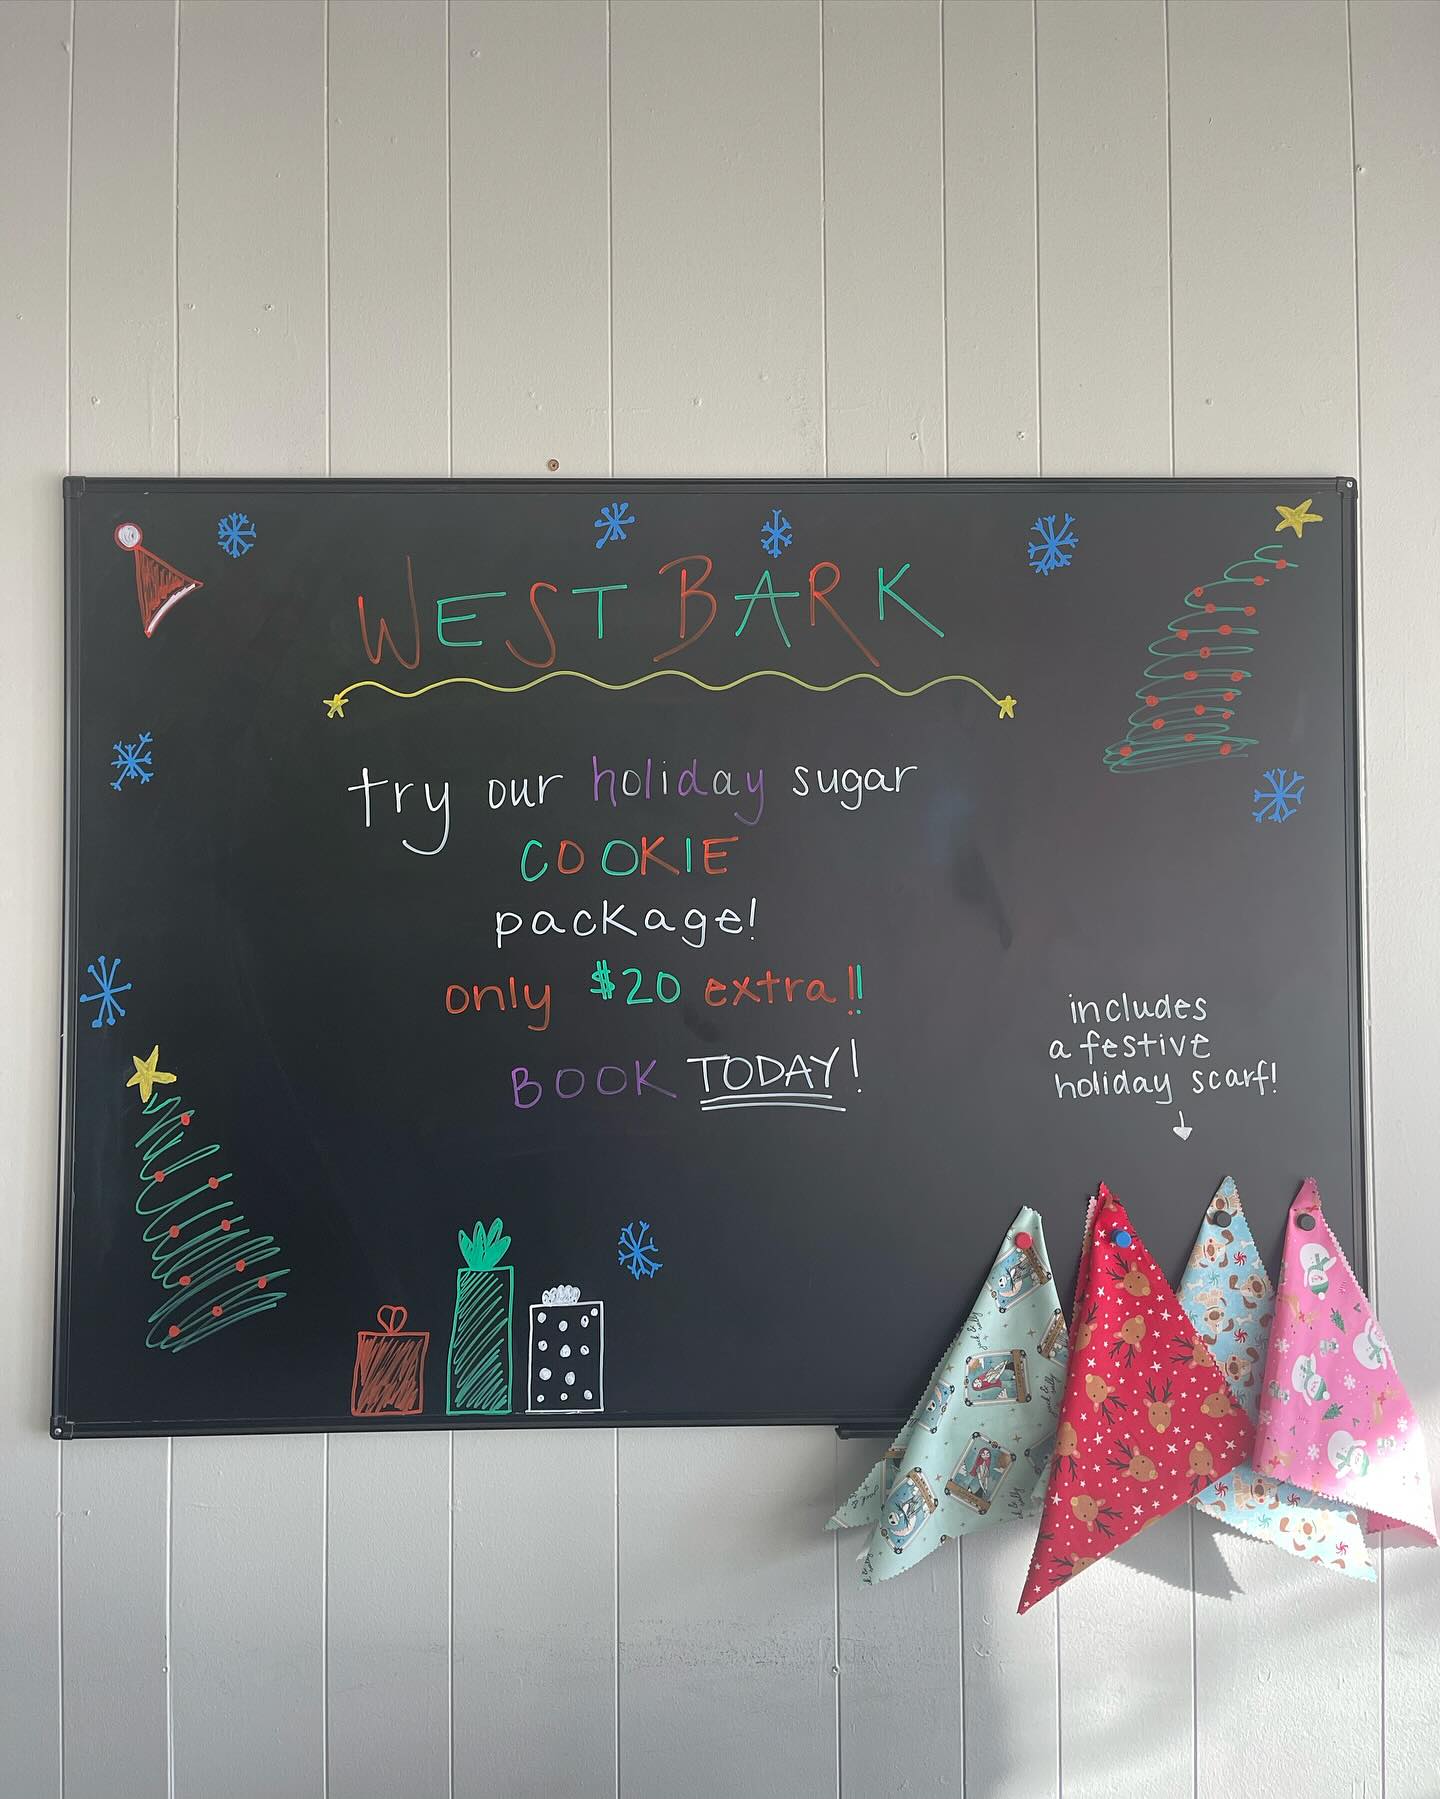 WEST BARK
try our holiday sugar
COOKIE
package!
only $20 extra!!
BOOK TODAY!
includes
a festive
holiday scarf!